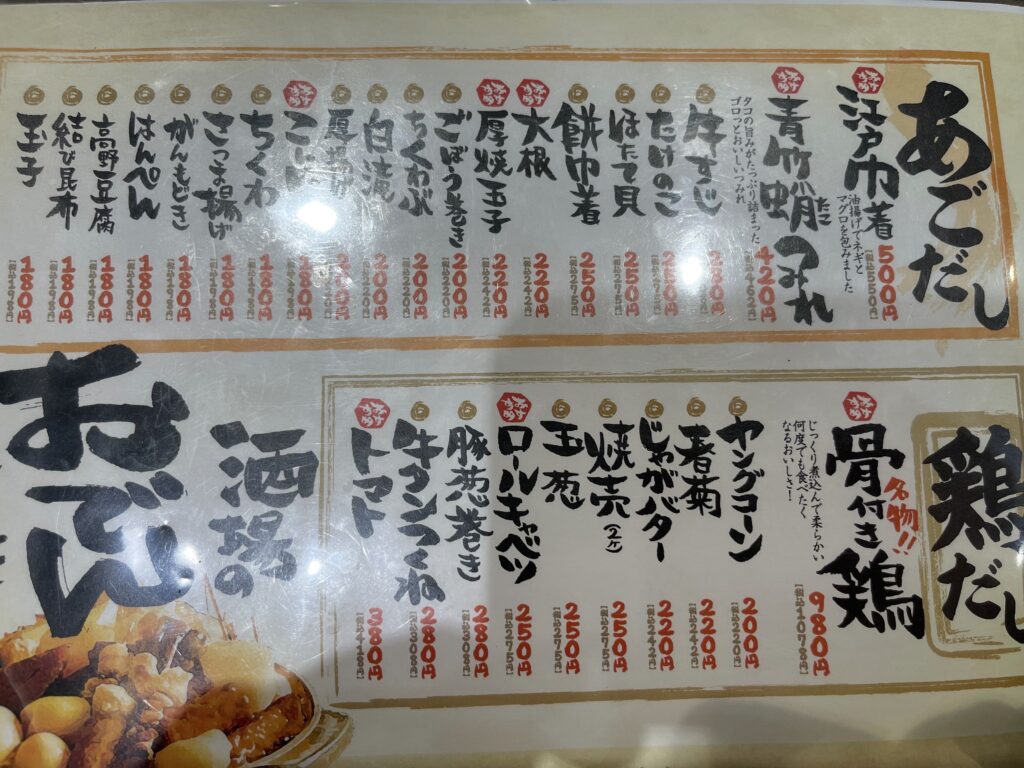 あごだし
江戸巾着
油揚げでネギと
マグロを包みました
500円
[税込550円]
青竹蛸つみれ
たこ
タコの旨みがたっぷり詰まった
ゴロっとおいしいつみれ
420円
[税込462円]
牛すじ
たけのこ
250円
[税込275円]
ほたて貝
250円
[税込275円]
餅巾着
250円
[税込275円]
大根
220円
[税込242円]
厚焼玉子
220円
[税込242円]
ごぼう巻き
200円
ちくわぶ
200円
白滝
厚揚げ
こんにゃく
180円
ちくわ
180円
[税込198円]
さつま揚げ
180円
[税込198円]
がんもどき
180円
[税込198円]
はんぺん
180円
[税込198円]
高野豆腐
180円
[税込198円]
結び昆布
180円
[税込198円]
玉子
180円
[税込198円]
鶏だし
名物!!
骨付き鶏
じっくり煮込んで柔らかい
何度でも食べたく
なるおいしさ!
980円
[税込1078円]
ヤングコーン
200円
春菊
220円
[税込242円]
じゃがバター
220円
[税込242円]
焼売(2ケ)
250円
[税込275円]
玉葱
250円
[税込275円]
ロールキャベツ
250円
[税込275円]
豚葱巻き
280円
[税込308円]
牛タンつくね
280円
[税込308円]
トマト
380円
[税込418円]
酒場の
おでん